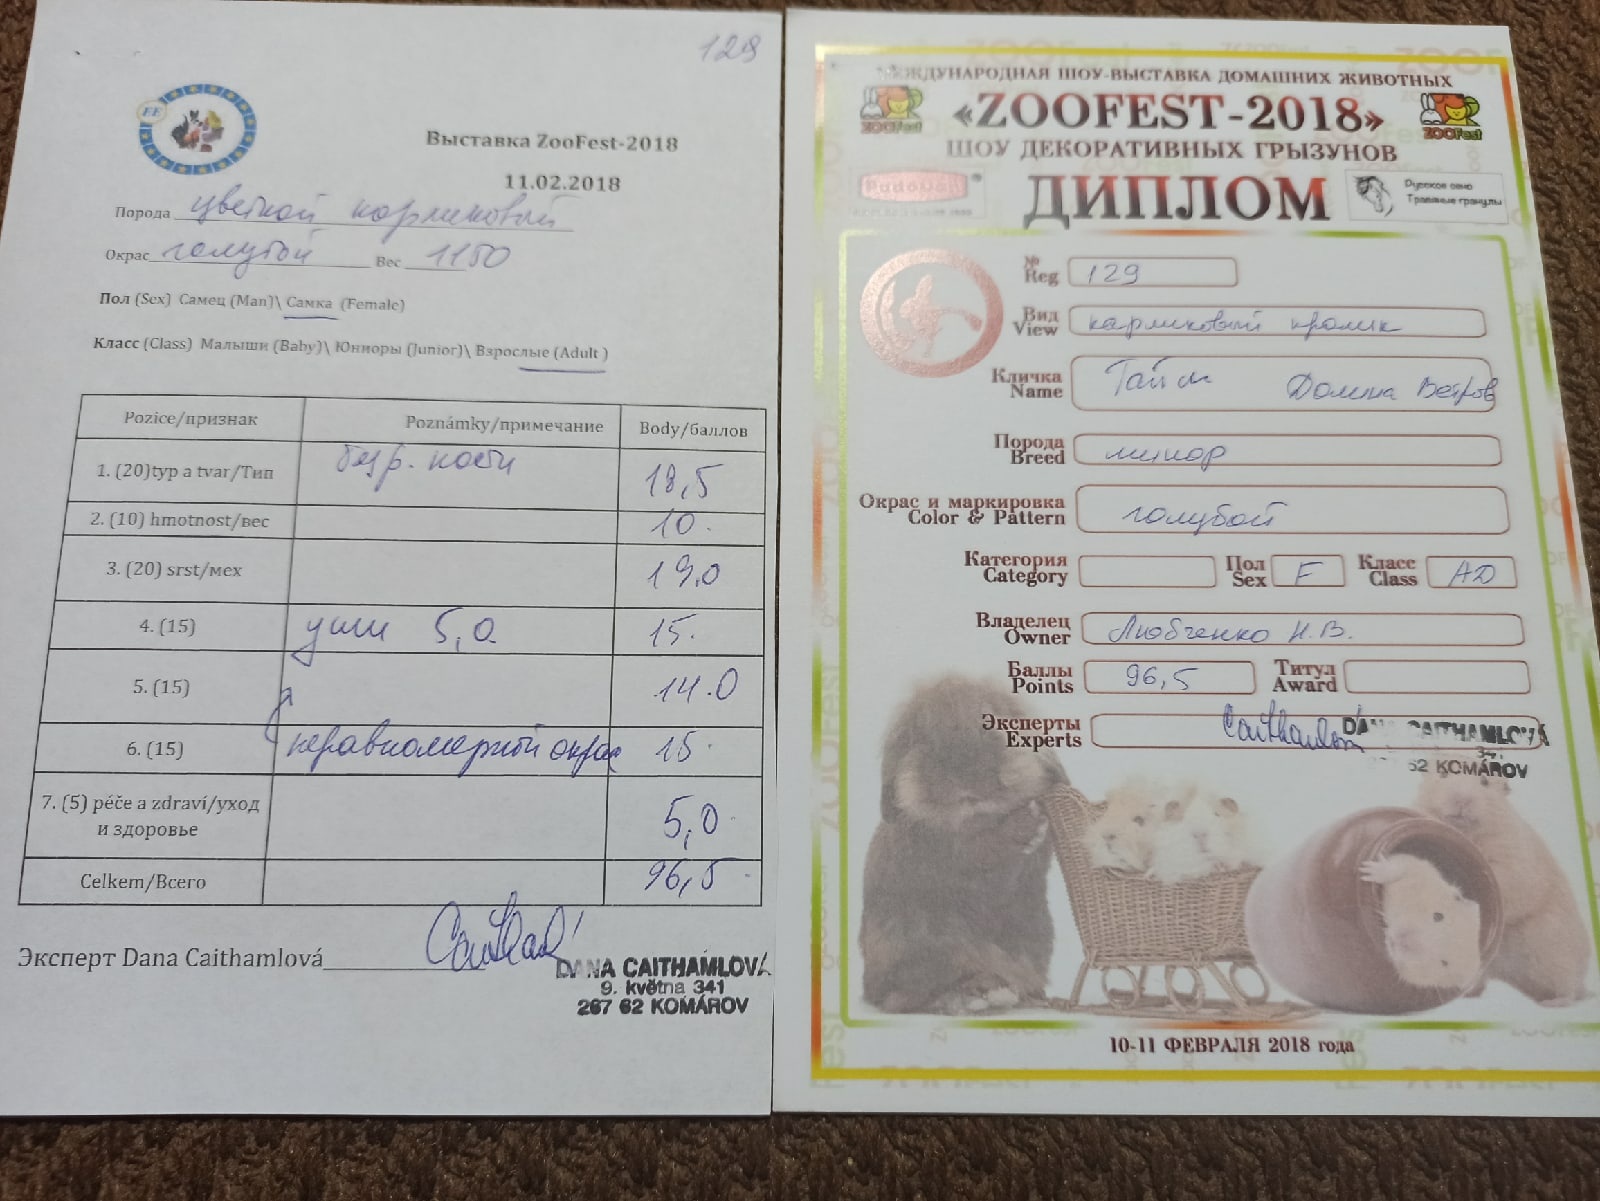 129
Выставка ZooFest-2018
11.02.2018
Порода цветной карликовый
Окрас голубой Вес 1150
Пол (Sex) Самец (Man)\ Самка (Female)
Класс (Class) Малыши (Baby)\ Юниоры (Junior)\ Взрослые (Adult )
Pozice/признак Poznámky/примечание Body/баллов
1. (20)typ a tvar/Тип кости 18,5
2. (10) hmotnost/вес 10.
3. (20) srst/мех 19,0
4. (15) уши 5,0 15.
5. (15) 14.0
6. (15) неравномерный окрас 15.
7. (5) péče a zdraví/уход
и здоровье 5,0
Celkem/Всего 96,5
Эксперт Dana Caithamlová
DANA CAITHAMLOVÁ
9. května 341
267 62 KOMÁROV
МЕЖДУНАРОДНАЯ ШОУ-ВЫСТАВКА ДОМАШНИХ ЖИВОТНЫХ
«ZOOFEST-2018»
ZOOFest
ZOOFest
ШОУ ДЕКОРАТИВНЫХ ГРЫЗУНОВ
Padovan
ДИПЛОМ
Русское сено
Травяные гранулы
№
Reg 129
Вид
View карликовый кролик
Кличка
Name Тайм Долина Ветров
Порода
Breed минор
Окрас и маркировка
Color & Pattern голубой
Категория
Category
Пол
Sex F
Класс
Class AD
Владелец
Owner Любченко Н.В.
Баллы
Points 96,5
Титул
Award
Эксперты
Experts
DANA CAITHAMLOVÁ
341
62 KOMÁROV
10-11 ФЕВРАЛЯ 2018 года